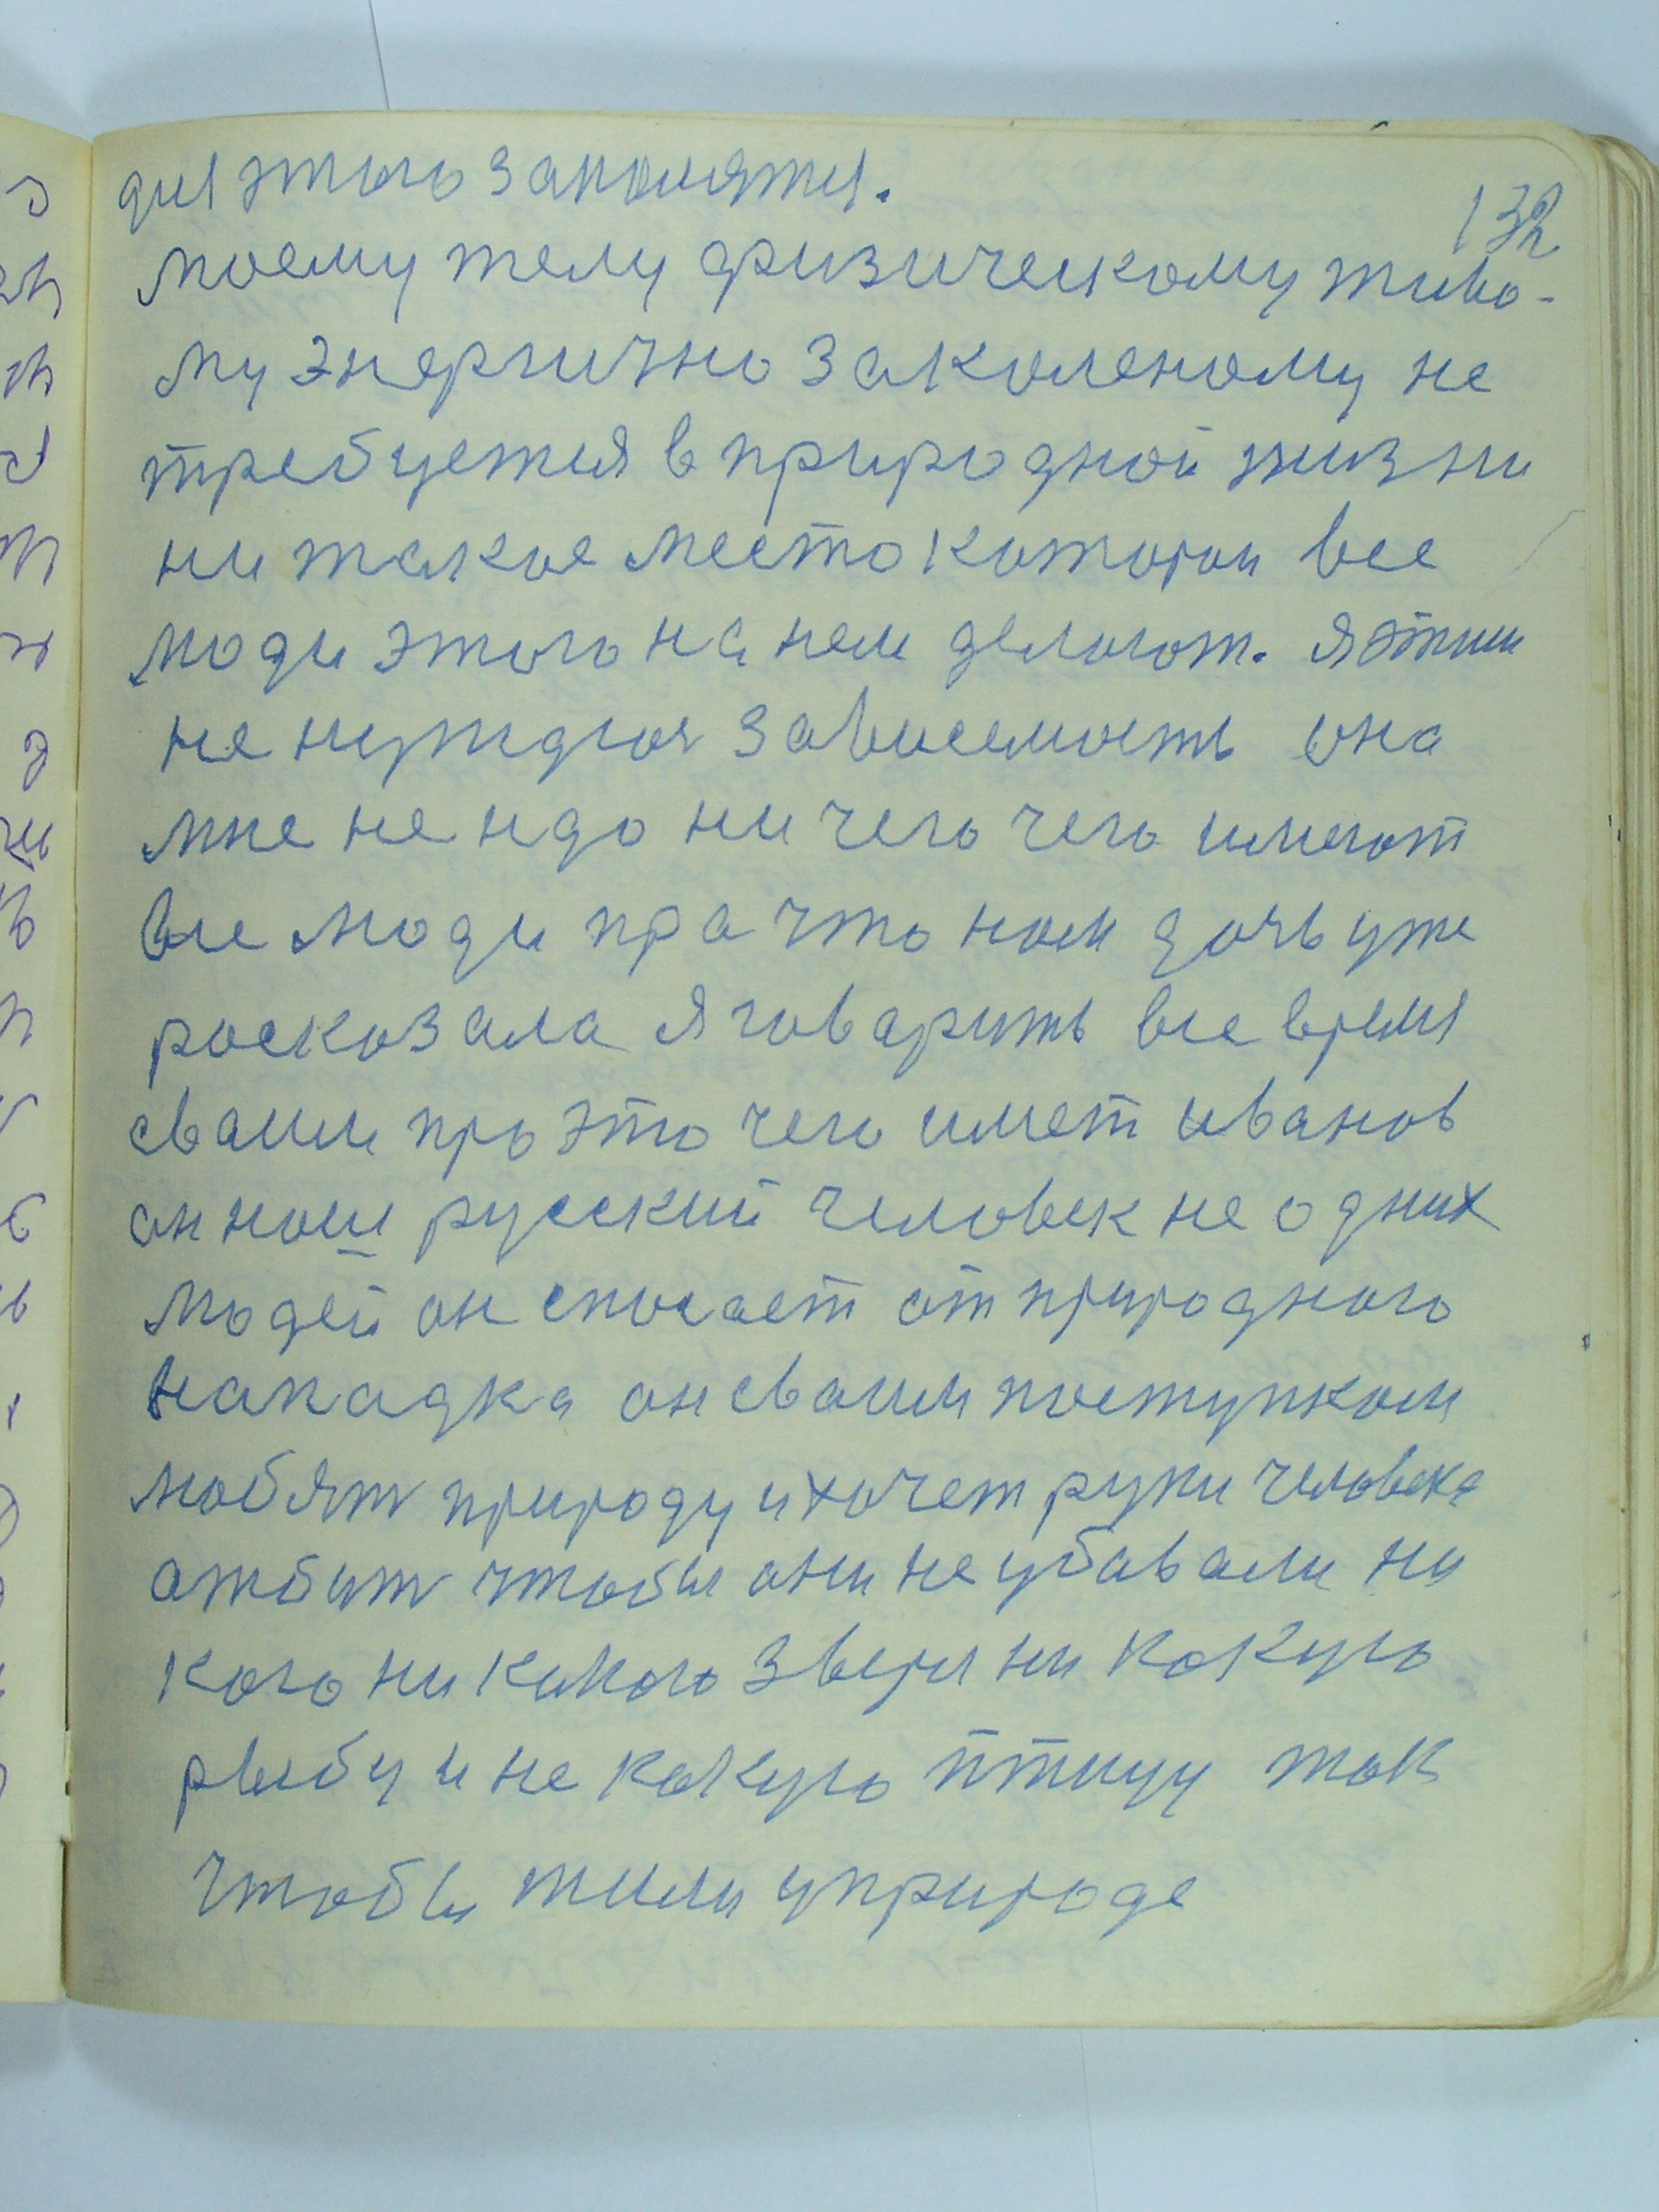 для этого заполнятся.
132
моему телу физическому живо-
му энергично закаленому не
требуется в природной жизни
ни такое место которои все
люди этого на нем делают. я этим
не нуждаюя зависемость она
мне не ндо ни чего чего имеют
все люди пра что нам дочь уже
росказала я говарить все время
сваими про это чего имет иванов
он наш русский человек не одних
людей он спосает от природного
нападка он сваим поступком
любят природу и хочет руки человека
атбит чтобы они не убавали ни
кого ни какого зверя ни какую
рыбу и не какую птицу так
чтобы жили у природе